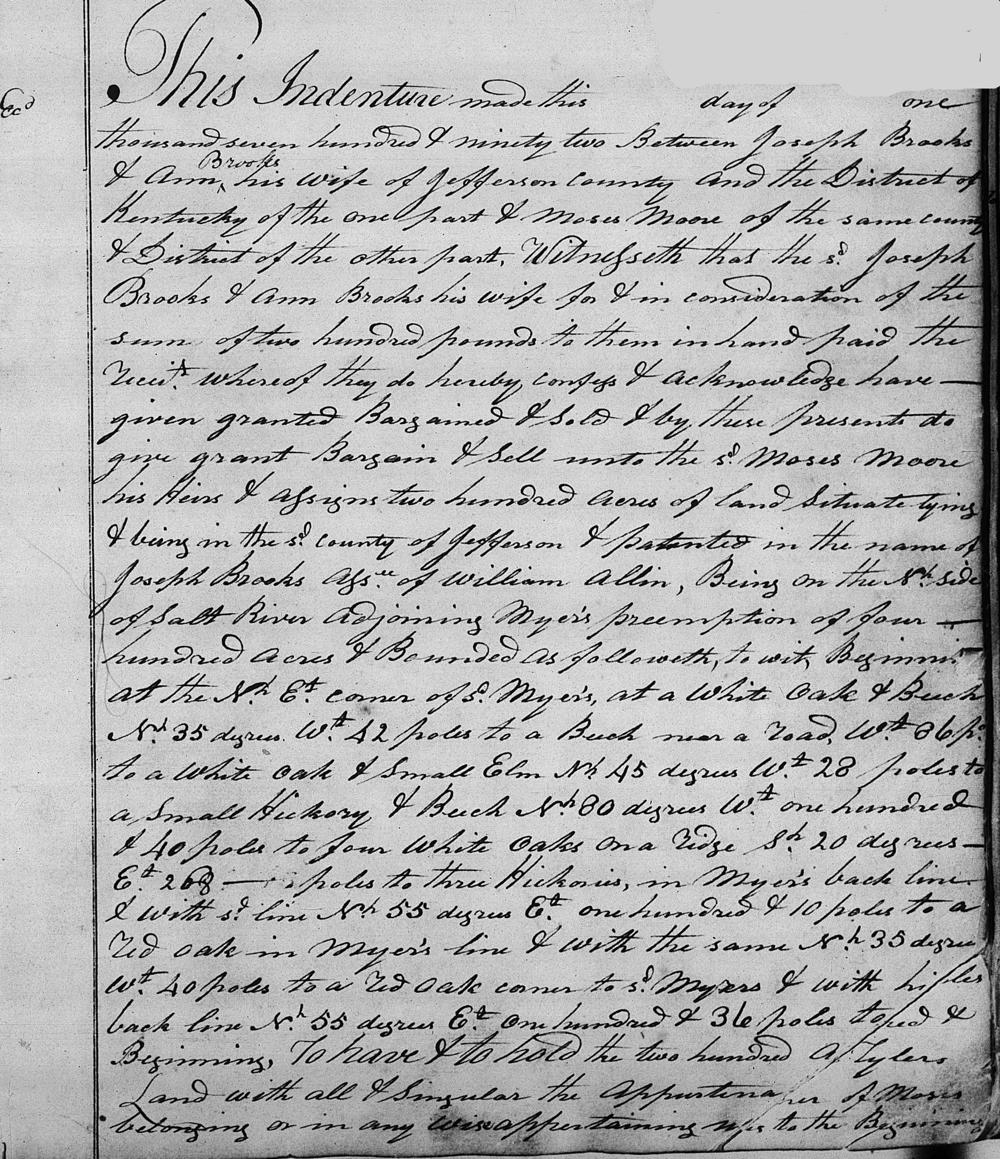 Ecd
This Indenture made this day of one
thousand seven hundred & ninety two Between Joseph Brooks
Brooks
& Ann, his wife of Jefferson County and the District of
Kentucky of the one part & Moses Moore of the same county
& District of the other part, Witnesseth that the sd. Joseph
Brooks & Ann Brooks his wife for & in consideration of the
sum of two hundred pounds to them in hand paid the
whereof they do hereby confess & acknowledge have —
given granted Bargained & Sold & by these presents do
give grant Bargain & Sell unto the sd. Moses Moore
his Heirs & assigns two hundred acres of land Situate lying
& being in the sd. county of Jefferson & patented in the name of
Joseph Brooks Assee. of William Allin, Being on the Nh. side
of Salt River Adjoining Myer's preemption of four —
hundred acres & Bounded as followeth, to wit, Beginnin
at the Nh. Et. corner of sd. Myer's, at a White Oak & Beech
Nh. 35 degrees Wt. 42 poles to a Beech near a road, Wt. 36 po.
to a White oak & Small Elm Nh. 45 degrees Wt. 28 poles to
a Small Hickory & Beech Nh. 80 degrees Wt. one hundred
& 40 poles to four White Oaks on a ridge Sh. 20 degrees —
Et. 268 — poles to three Hickories, in Myer's back line
& with sd. line Nh. 55 degrees Et. one hundred & 10 poles to a
red oak in Myer's line & with the same Nh. 35 degree
Wt. 40 poles to a red oak corner to sd. Myers & with his
back line Nh. 55 degrees Et. one hundred & 36 poles to &
Beginning, To have & to hold the two hundred
Land with all & Singular the Appurtena of Moses
belonging or in any wise appertaining to the Beginning